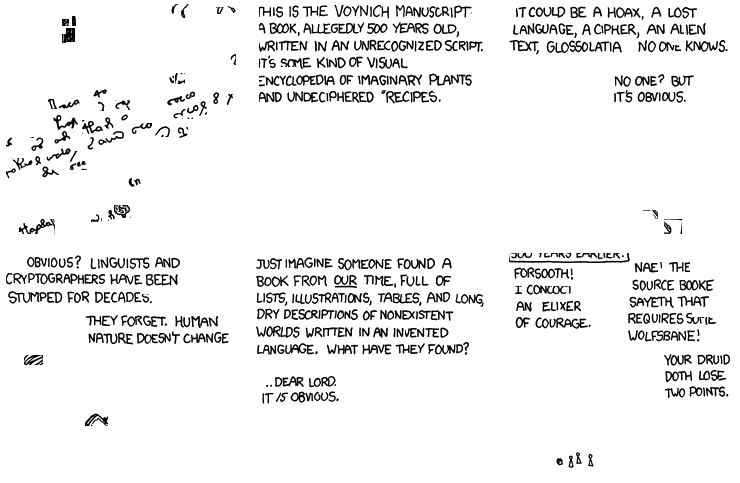 THIS IS THE VOYNICH MANUSCRIPT
A BOOK, ALLEGEDLY 500 YEARS OLD,
WRITTEN IN AN UNRECOGNIZED SCRIPT.
IT'S SOME KIND OF VISUAL
ENCYCLOPEDIA OF IMAGINARY PLANTS
AND UNDECIPHERED "RECIPES.
IT COULD BE A HOAX, A LOST
LANGUAGE, A CIPHER, AN ALIEN
TEXT, GLOSSOLATIA NO ONE KNOWS.
NO ONE? BUT
IT'S OBVIOUS.
OBVIOUS? LINGUISTS AND
CRYPTOGRAPHERS HAVE BEEN
STUMPED FOR DECADES.
THEY FORGET. HUMAN
NATURE DOESN'T CHANGE
JUST IMAGINE SOMEONE FOUND A
BOOK FROM OUR TIME, FULL OF
LISTS, ILLUSTRATIONS, TABLES, AND LONG,
DRY DESCRIPTIONS OF NONEXISTENT
WORLDS WRITTEN IN AN INVENTED
LANGUAGE. WHAT HAVE THEY FOUND?
..DEAR LORD.
IT IS OBVIOUS.
500 YEARS EARLIER:
FORSOOTH!
I CONCOCT
AN ELIXER
OF COURAGE.
NAE! THE
SOURCE BOOKE
SAYETH THAT
REQUIRES
WOLFSBANE!
YOUR DRUID
DOTH LOSE
TWO POINTS.